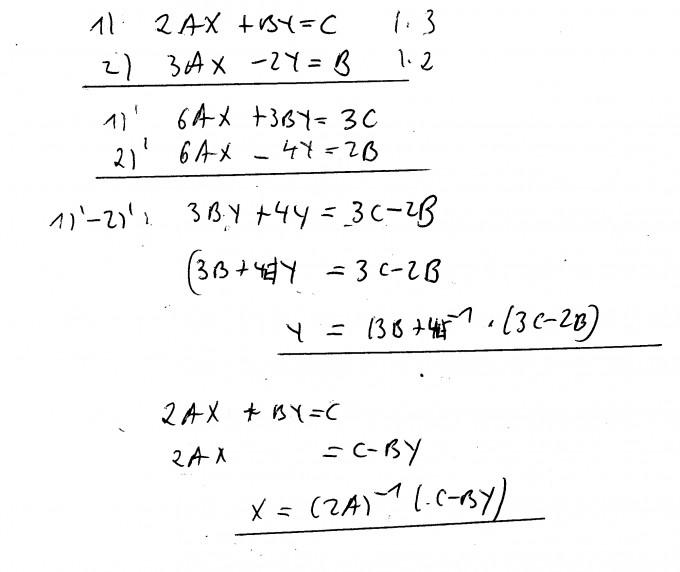 1) 2AX + BY = C |· 3
2) 3AX - 2Y = B |· 2
1)' 6AX + 3BY = 3C
2)' 6AX - 4Y = 2B
1)' - 2)': 3BY + 4Y = 3C - 2B
(3B + 4E)Y = 3C - 2B
Y = (3B + 4E)⁻¹ · (3C - 2B)
2AX + BY = C
2AX = C - BY
X = (2A)⁻¹ (C - BY)